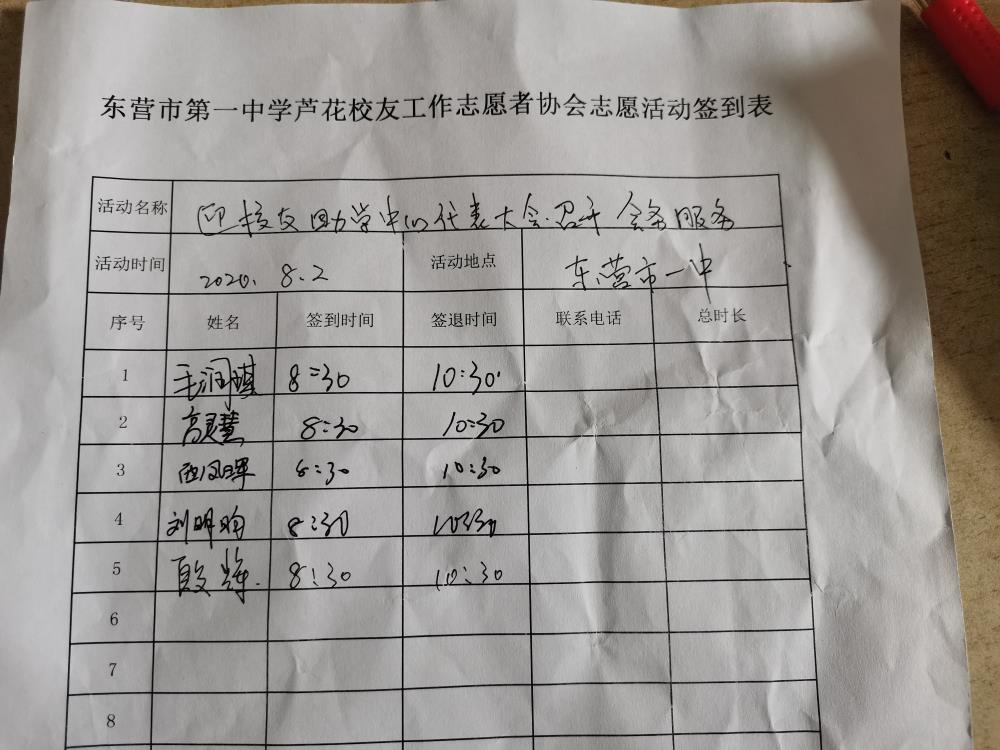 东营市第一中学芦花校友工作志愿者协会志愿活动签到表
活动名称 迎校友助学中心代表大会召开 会务服务
活动时间 2020.8.2 活动地点 东营市一中
序号 姓名 签到时间 签退时间 联系电话 总时长
1 毛润琪 8:30 10:30
2 高灵慧 8:30 10:30
3 8:30 10:30
4 刘明昀 8:30 10:30
5 殷 8:30 10:30
6
7
8